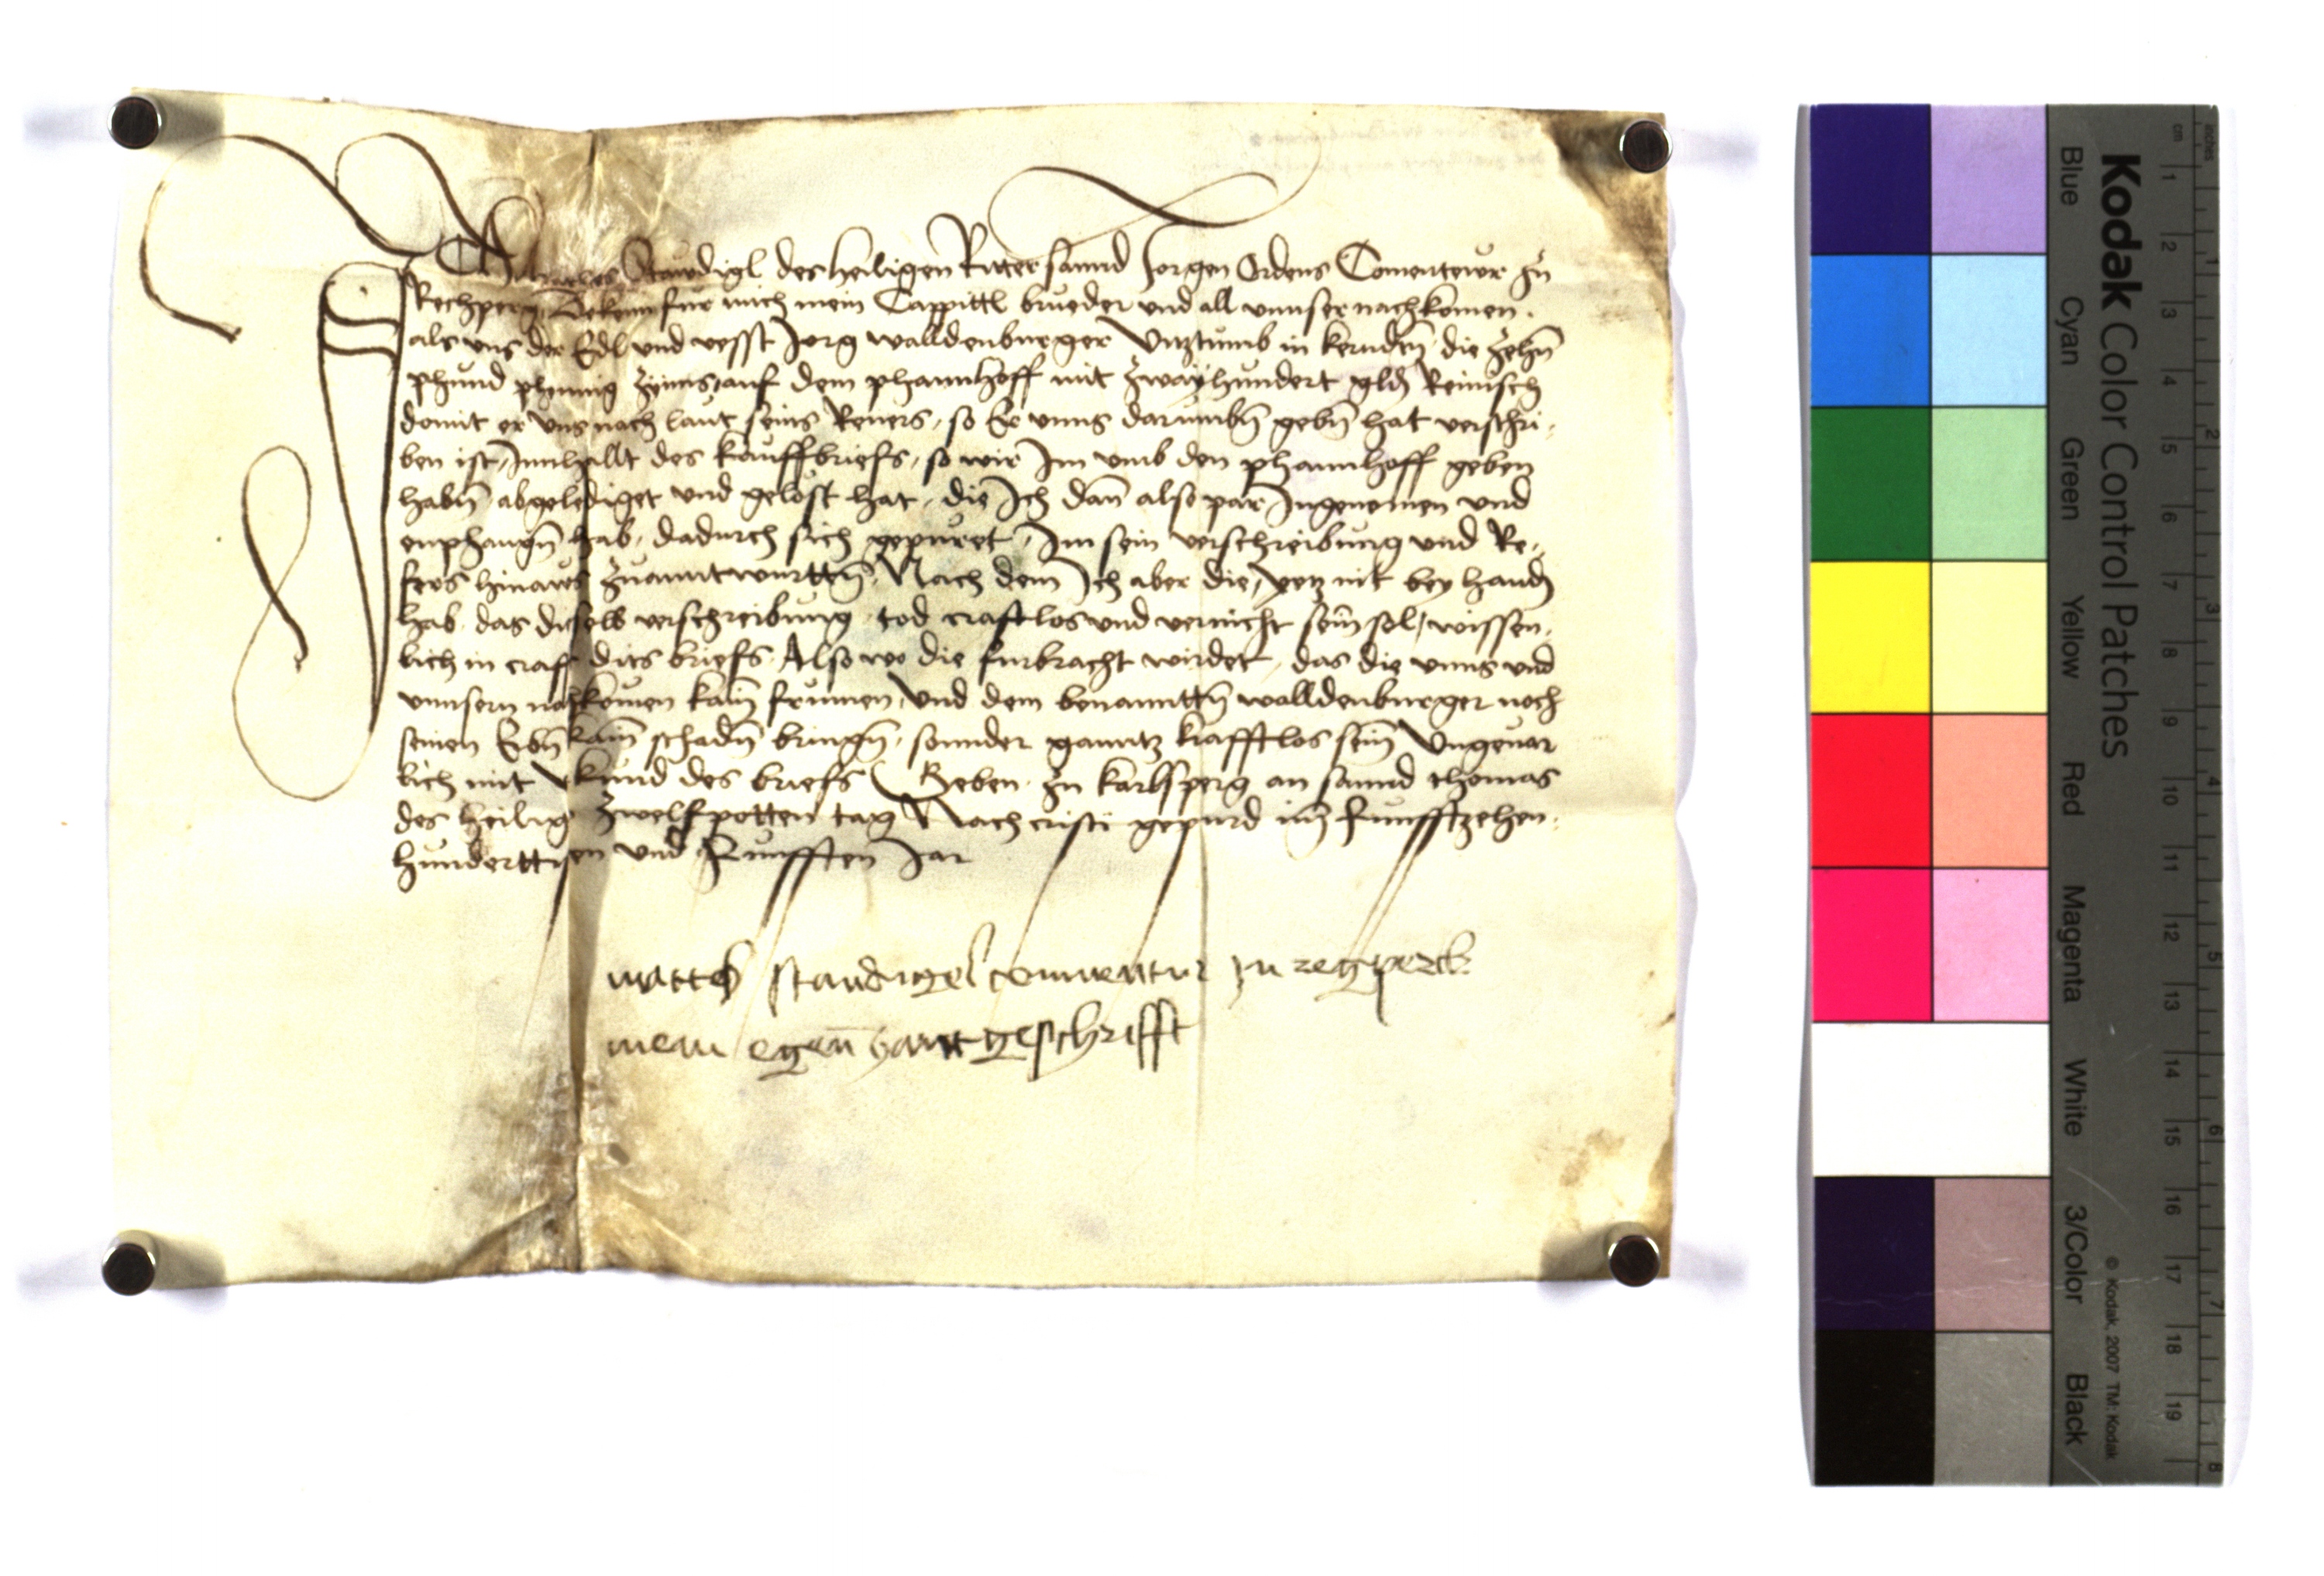 Ich Matheus Staudigl des heiligen Ritter sannd Jorgen Ordens Comentewr zu
Rechperg Bekenn fur mich mein Cappittl brueder und all unnser nachkomen.
als uns der Edl und vesst Jorg walldenburger Vitztumb in kernden die zehn
phund phennig zynns, auf dem phannhoff mit zwayhundert gldn Reinisch
domit er uns nach laut seins Revers, so Er unns darumbn gebn hat verschri-
ben ist, Innhallt des kauffbriefs, so wir Im umb den phannhoff geben
habn abgelediget und gelost hat, die Ich dan also par Ingenomen und
enphangn hab, dadurch sich gepuret, Im sein verschreibung und Re-
fers hinaws zuanntwurttn, Nach dem Ich aber die, yetz nit bey hanndn
hab, das dieselb verschreibung tod craftlos und vernicht sein sol, wissen-
lich in craft dits briefs. Also wo die furbracht wirdet, das die unns und
unnsern nachkomen kain frumen, und dem benanntten walldenburger noch
seinen Erbn kain schadn bringn, sonnder ganntz krafftlos sein Ungevar
lich mit urkund des briefs Geben zu karlsperg an sannd thomas
des heilign zwelfpotten tag Nach cristi gepurd im Funfftzehen-
hunderttisten und Funfften Jar
matteß staudigel comentur zu regperck
mein egen hantgeschrifft
Kodak Color Control Patches
Blue Cyan Green Yellow Red Magenta White 3/Color Black
© Kodak, 2007 TM: Kodak
cm 1 2 3 4 5 6 7 8 9 10 11 12 13 14 15 16 17 18 19
inches 1 2 3 4 5 6 7 8